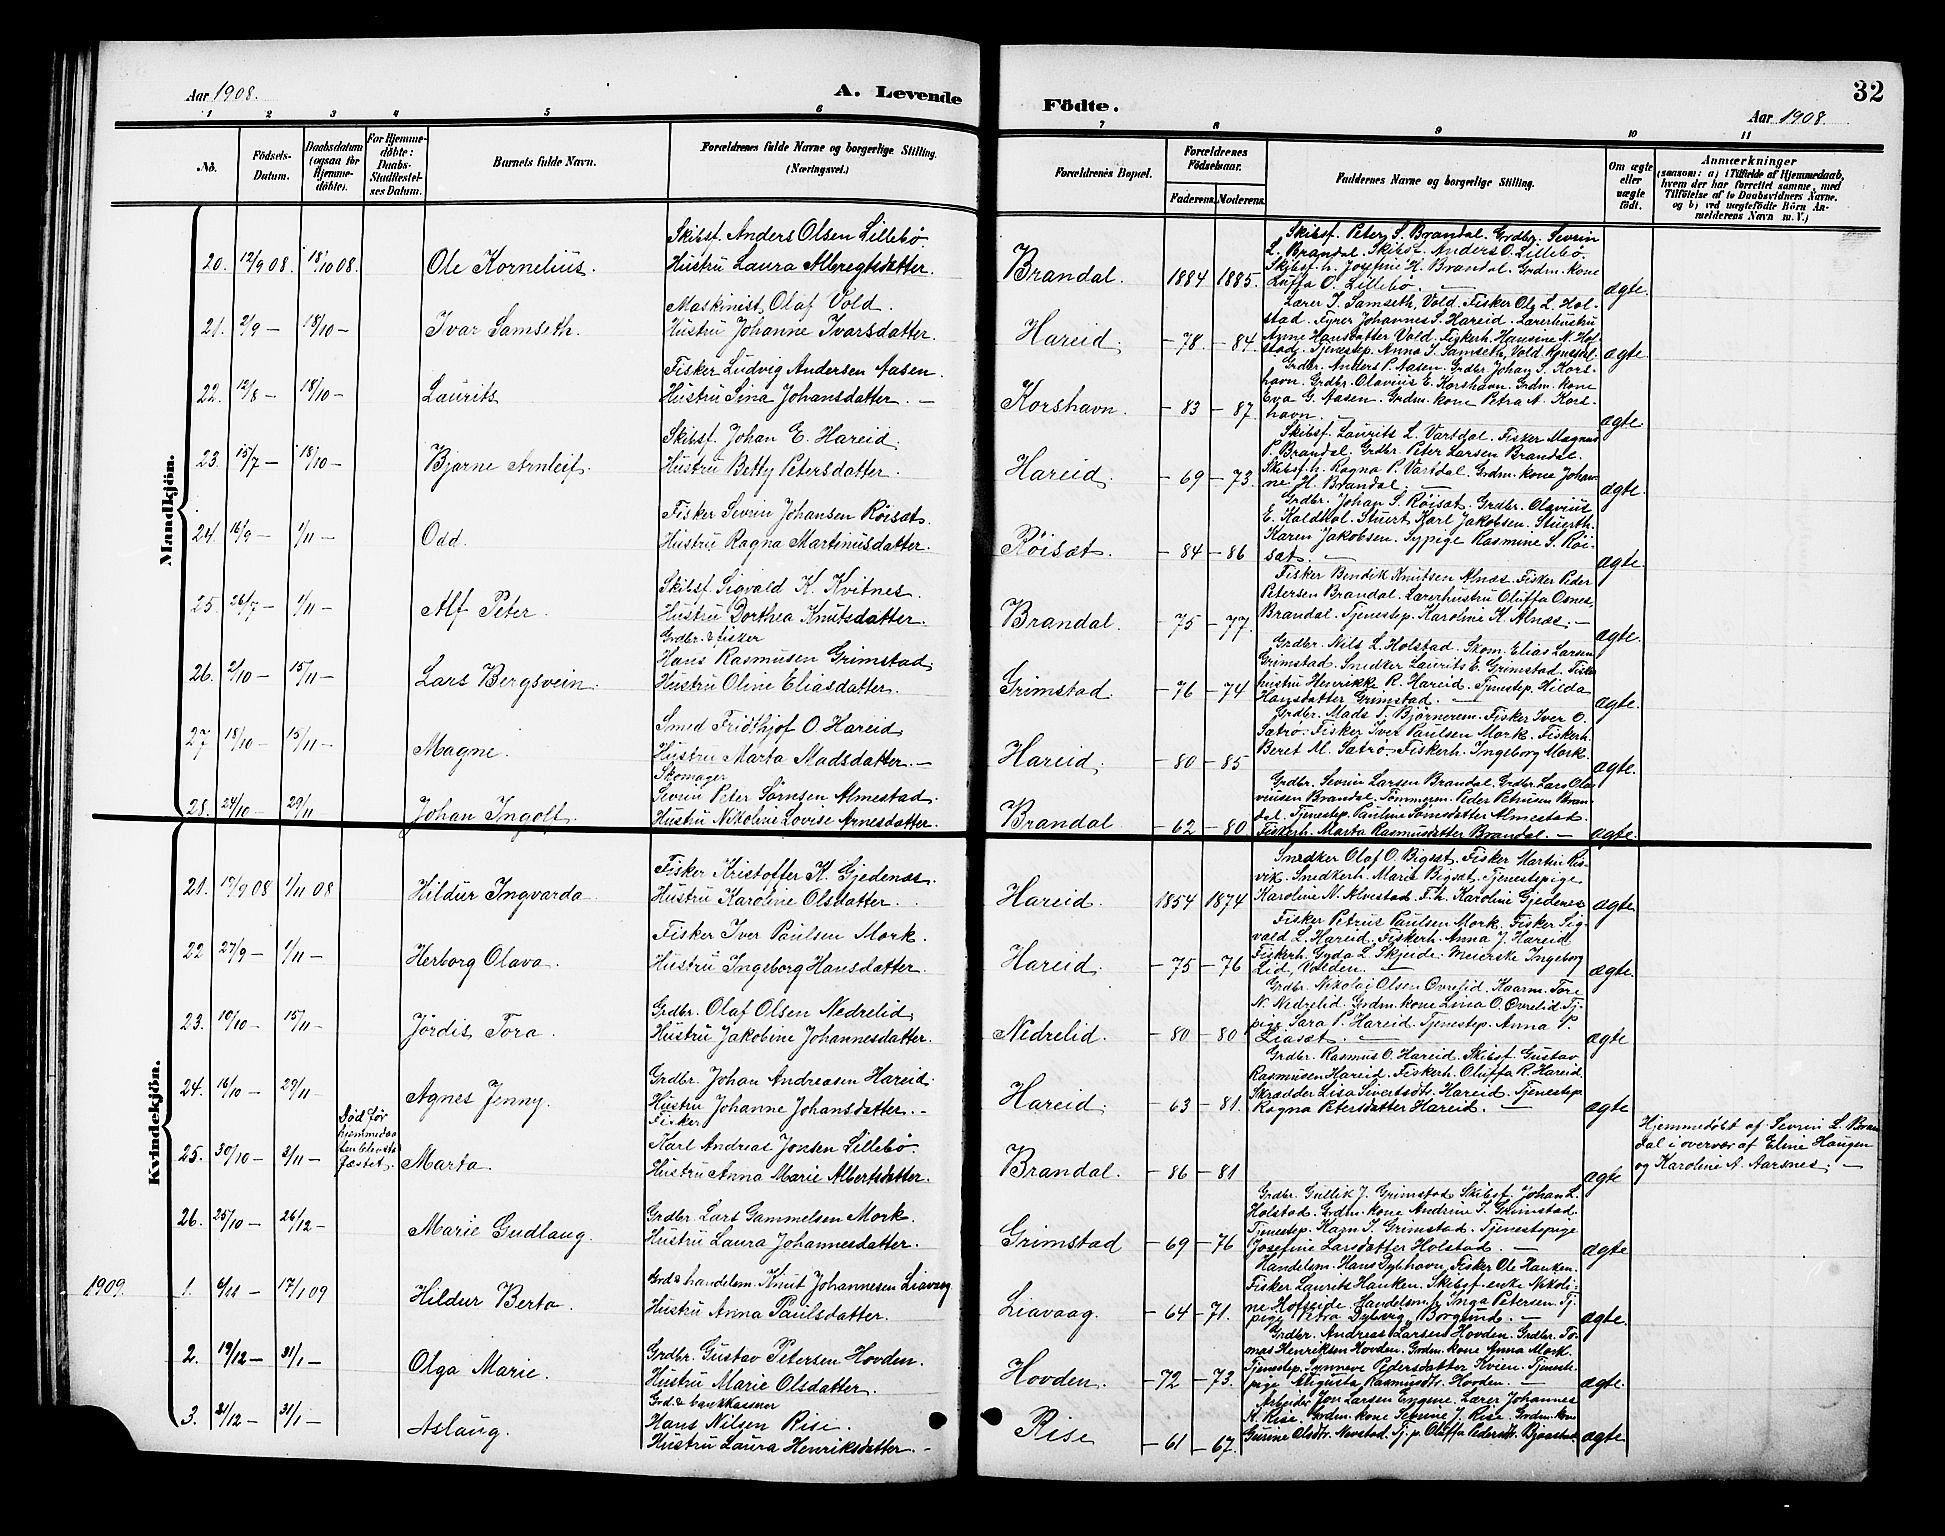 Aar 1908.
A. Levende
Födte.
32
Aar 1908.
1 2 3 4 5 6 7 8 9 10 11
No.
Födsels-Datum.
Daabsdatum (ogsaa for Hjemmedöbte).
For Hjemmedöbte: Daabs-Stadfæstelses Datum.
Barnets fulde Navn.
Forældrenes fulde Navne og borgerlige Stilling. (Næringsvei.)
Forældrenes Bopæl.
Forældrenes Födselsaar.
Faderens. Moderens.
Faddernes Navne og borgerlige Stilling.
Om ægte eller uægte födt.
Anmærkninger
(saasom: a) i Tilfælde af Hjemmedaab, hvem der har forrettet samme, med Tilföielse af to Daabsvidners Navne, og b) ved uægtefödte Börn Anmelderens Navn m. V.)
Mandkjön.
20. 12/9 08. 18/10 08. Ole Kornelius.
Skibsf. Anders Olsen Lillebö
Hustru Laura Albregtsdatter.
Brandal. 1884 1885.
Skibsf. Peter S. Brandal. Grdbr. Severin
L. Brandal. Skibsf. Anders O. Lillebö.
Skibsf. h. Josefine H. Brandal. Grdm. kone
Luffa O. Lillebö. —
ægte.
21. 2/9 — 18/10 — Ivar Samseth.
Maskinist Olaf Vold.
Hustru Johanne Ivarsdatter
Hareid. — 78. — 84.
Lærer I. Samseth Vold. Fisker Ole L. Hol-
stad. Fyrer Johannes S. Hareid. Lærerhustru
Anne Hansdatter Vold. Fiskerh. Hansine N. Hol-
stad. Tjenestep. Anna I. Samseth, Vold
ægte
22. 12/8 — 18/10 — Laurits
Fisker Ludvig Andersen Aasen.
Hustru Sina Johansdatter. —
Korshavn. — 83 — 87.
Grdbr. Anders P. Aasen. Grdbr. Johan S. Kors-
havn. Grdbr. Olavius E. Korshavn. Grdm. kone
Eva G. Aasen. Grdm. kone Petra A. Kors-
havn. —
ægte.
23. 15/7 — 18/10 — Bjarne Arnleif.
Skibsf. Johan E. Hareid.
Hustru Betty Petersdatter.
Hareid. — 69 — 73.
Skibsf. Laurits L. Vartdal. Fisker Magnus
P. Brandal. Grdbr. Peter Larsen Brandal.
Skibsf. h. Ragna P. Vartdal. Grdm. kone Johan-
ne H. Brandal. —
ægte.
24. 16/9 — 1/11 — Odd.
Fisker Sevrin Johansen Röisæt.
Hustru Ragna Martinusdatter.
Röisæt. — 84 — 86
Grdbr. Johan S. Röisæt. Grdbr. Olavius
E. Kaldhol. Stuert Karl Jakobsen. Stuerth.
Karen Jakobsen. Sypige Rasmine S. Röi-
sæt. —
ægte.
25. 26/7 — 1/11 — Alf Peter.
Skibsf. Sigvald K. Kvitnes.
Hustru Dorthea Knutsdatter.
Brandal. — 75 — 77.
Fisker Bendik Knutsen Alnæs. Fisker Peder
Petersen Brandal. Lærerhustru Oluffa Osnes,
Brandal. Tjenestep. Karoline K. Alnæs. —
ægte.
26. 2/10 — 15/11 — Lars Bergsvein.
Grdbr. & fisker
Hans Rasmusen Grimstad.
Hustru Oline Eliasdatter.
Grimstad. — 76 — 74
Grdbr. Nils L. Holstad. Skom. Elias Larsen
Grimstad. Snedker Laurits E. Grimstad. Fisker
hustru Henrikke R. Hareid. Tjenestep. Hilda
Hansdatter Grimstad. —
ægte.
27 18/10 — 15/11 — Magne.
Smed Fridthjof O. Hareid
Hustru Marta Madsdatter. —
Hareid. — 80 — 85
Grdbr. Mads T. Björnerem. Fisker Iver O.
Sætrø. Fisker Iver Paulsen Mork. Fiskerh.
Beret M. Sætrø. Fiskerh. Ingeborg Mork.
ægte.
28. 24/10 — 29/11 Johan Ingolf.
Skomager
Sevrin Peter Sørnsen Almestad.
Hustru Nikoline Lovise Arnesdatter.
Brandal — 62 — 80
Grdbr. Sevrin Larsen Brandal. Grdbr. Lars Ola-
viusen Brandal. Tömmerm. Peder Petrisen Bran-
dal. Tjenestep. Pauline Sörnsdatter Almestad.
Fiskerh. Marta Rasmusdatter Brandal. —
ægte.
Kvindekjön.
21. 17/9 08 1/11 08 Hildur Ingvarda
Fisker Kristoffer K. Gjedenæs.
Hustru Karoline Olsdatter.
Hareid. 1854 1874
Snedker Olaf O. Bigsæt. Fisker Martin Ris-
vik. Snedkerh. Marie Bigsæt. Tjenestepige
Karoline N. Alvestad. F.h. Karoline Gjedenes
ægte
22 27/9 — 1/11 — Herborg Olava.
Fisker Iver Paulsen Mork.
Hustru Ingeborg Hansdatter.
Hareid. — 75 — 76
Fisker Petrus Paulsen Mork. Fisker Sig-
vald L. Hareid. Fiskerh. Anna J. Hareid
Fiskerh. Gyda L. Skjeide. Meierske Ingeborg
Lid, Volden. —
ægte.
23. 10/10 — 15/11 — Jördis Tora.
Grdbr. Olaf Olsen Nedrelid.
Hustru Jakobine Johannesdatter.
Nedrelid. — 80 — 80
Grdbr. Nikolai Olsen Overlid. Kaarm. Tore
N. Nedrelid. Grdm. kone Lina O. Overlid. Tj.
pige Sara P. Hareid. Tjenestep. Anna P.
Liasæt. —
ægte
24. 16/10 — 29/11 — Agnes Jenny.
Grdbr. Johan Andreasen Hareid.
Hustru Johanne Johansdatter. —
Hareid. — 63 — 81.
Grdbr. Rasmus O. Hareid. Skibsf. Gustav
Rasmusen Hareid. Fiskerh. Oluffa R. Hareid
Skrædder Lisa Sivertsdtr. Hareid. Tjenestep.
Ragna Petersdatter Hareid. —
ægte
25. 30/10 — 2/11 — Död för hjemmedaaben blev stadfæstet. Marta.
Fisker
Karl Andreas Jonsen Lillebö.
Hustru Anna Marie Albertsdatter.
Brandal. — 86 — 81
ægte
Hjemmedöbt af Sevrin L. Bran-
dal i overvær af Eline Haugen
og Karoline A. Aarsnes. —
26. 25/10 — 26/12 — Marie Gudlaug.
Grdbr Lars Gammelsen Mork.
Hustru Laura Johannesdatter.
Grimstad — 69 — 76
Grdbr. Gullik J. Grimstad. Skibsf. Johan L.
Holstad. Grdm. kone Andrine I. Grimstad.
Tjenestep. Karn I. Grimstad. Tjenestepige
Josefine Larsdatter Holstad. —
ægte
1909.
1. 6/11 — 17/1 09 Hildur Berta.
Grd & handelsm. Knut Johannesen Liavaag
Hustru Anna Paulsdatter.
Liavaag. — 64 — 71.
Handelsm. Hans Dybhavn. Fisker Ole Hauken.
Fisker Laurits Hauken. Skibsf. enke Nikoli-
ne Hofseide. Handelsm. h. Inga Petersen. Tj.
pige Petra Dybvig, Borgund. —
ægte.
2. 19/12 — 31/1 — Olga Marie.
Grdbr. Gustav Petersen Hovden.
Hustru Marie Olsdatter.
Hovden. — 72 — 73.
Grdbr. Andreas Larsen Hovden. Grdbr. To-
mas Henriksen Hovden. Grdm. kone Anna Mork.
Tjenestep. Synneve Pedersdatter Kvien. Tjeneste-
pige Augusta Rasmusdtr. Hovden. —
ægte.
3. 21/12 — 31/1 — Aslaug.
Grd. & bankkasserer
Hans Nilsen Rise
Hustru Laura Henriksdatter. —
Rise — 61 — 67.
Arbeider Jon Larsen Lærer Johannes
K. Rise. Grdm. kone J. Rise. Grdm. kone
Gurine Olsdtr. Tj. p. Oluffa Pedersdtr.
ægte.